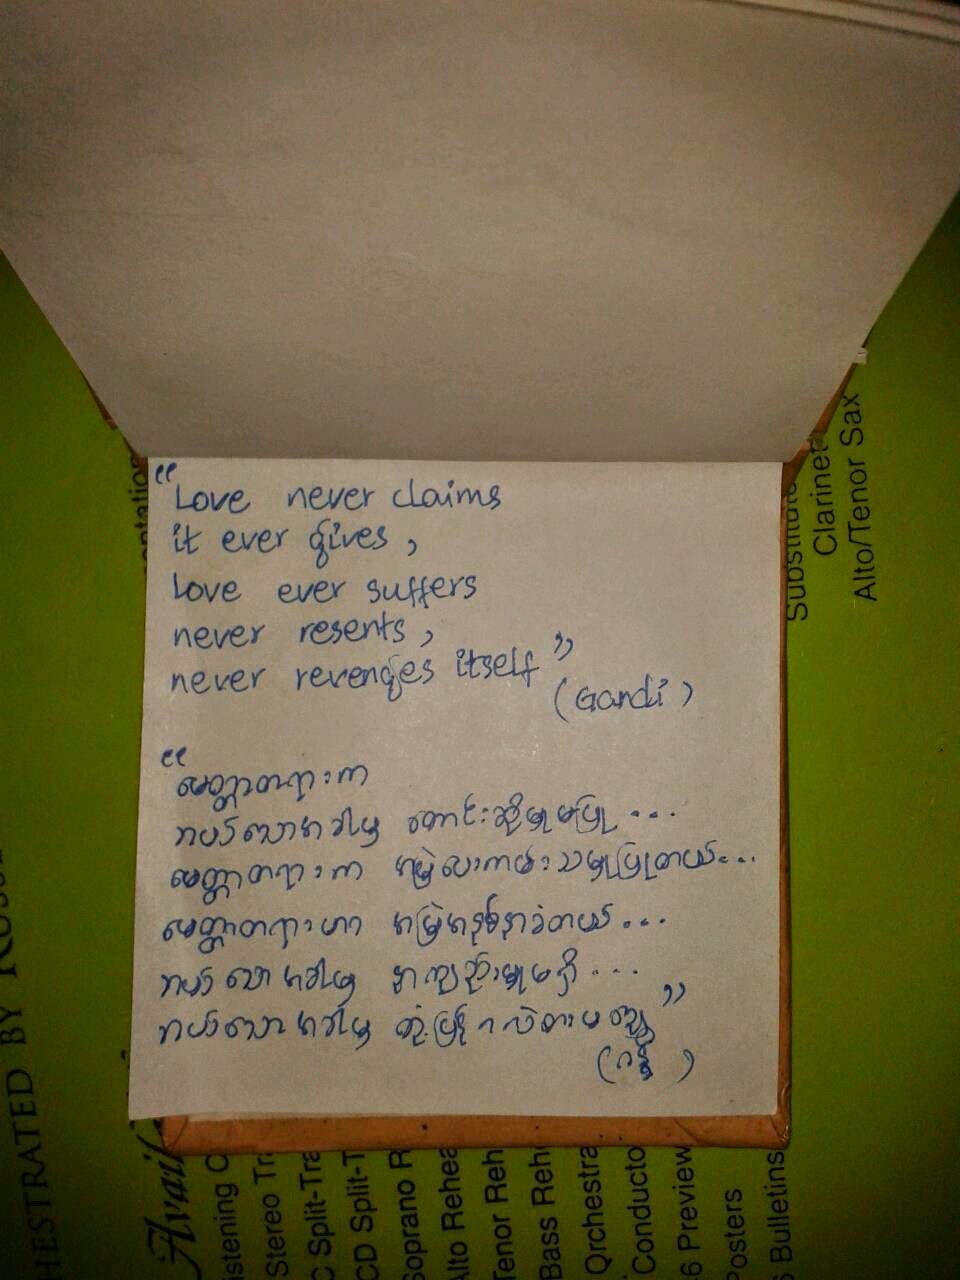 “Love never claims
it ever gives,
Love ever suffers
never resents,
never revenges itself”
(Gandi)
“မေတ္တာတရားက
ဘယ်သောအခါမှ တောင်းဆိုမှုမပြု...
မေတ္တာတရားက အမြဲပေးကမ်းသမှုပြုတယ်...
မေတ္တာတရားဟာ အမြဲအနစ်နာခံတယ်...
ဘယ်သောအခါမှ နာကျည်းမှုမရှိ...
ဘယ်သောအခါမှ တုံ့ပြန်ကလဲ့စားမချေ”
(ဂန္ဒီ)
Substitute
Clarinet
Alto/Tenor Sax
HESTRATED BY
Avail
istening
Stereo
Split-
CD Split-
Soprano
Alto
Tenor
Bass
Orchestra
Conducto
6 Preview
Posters
Bulletins